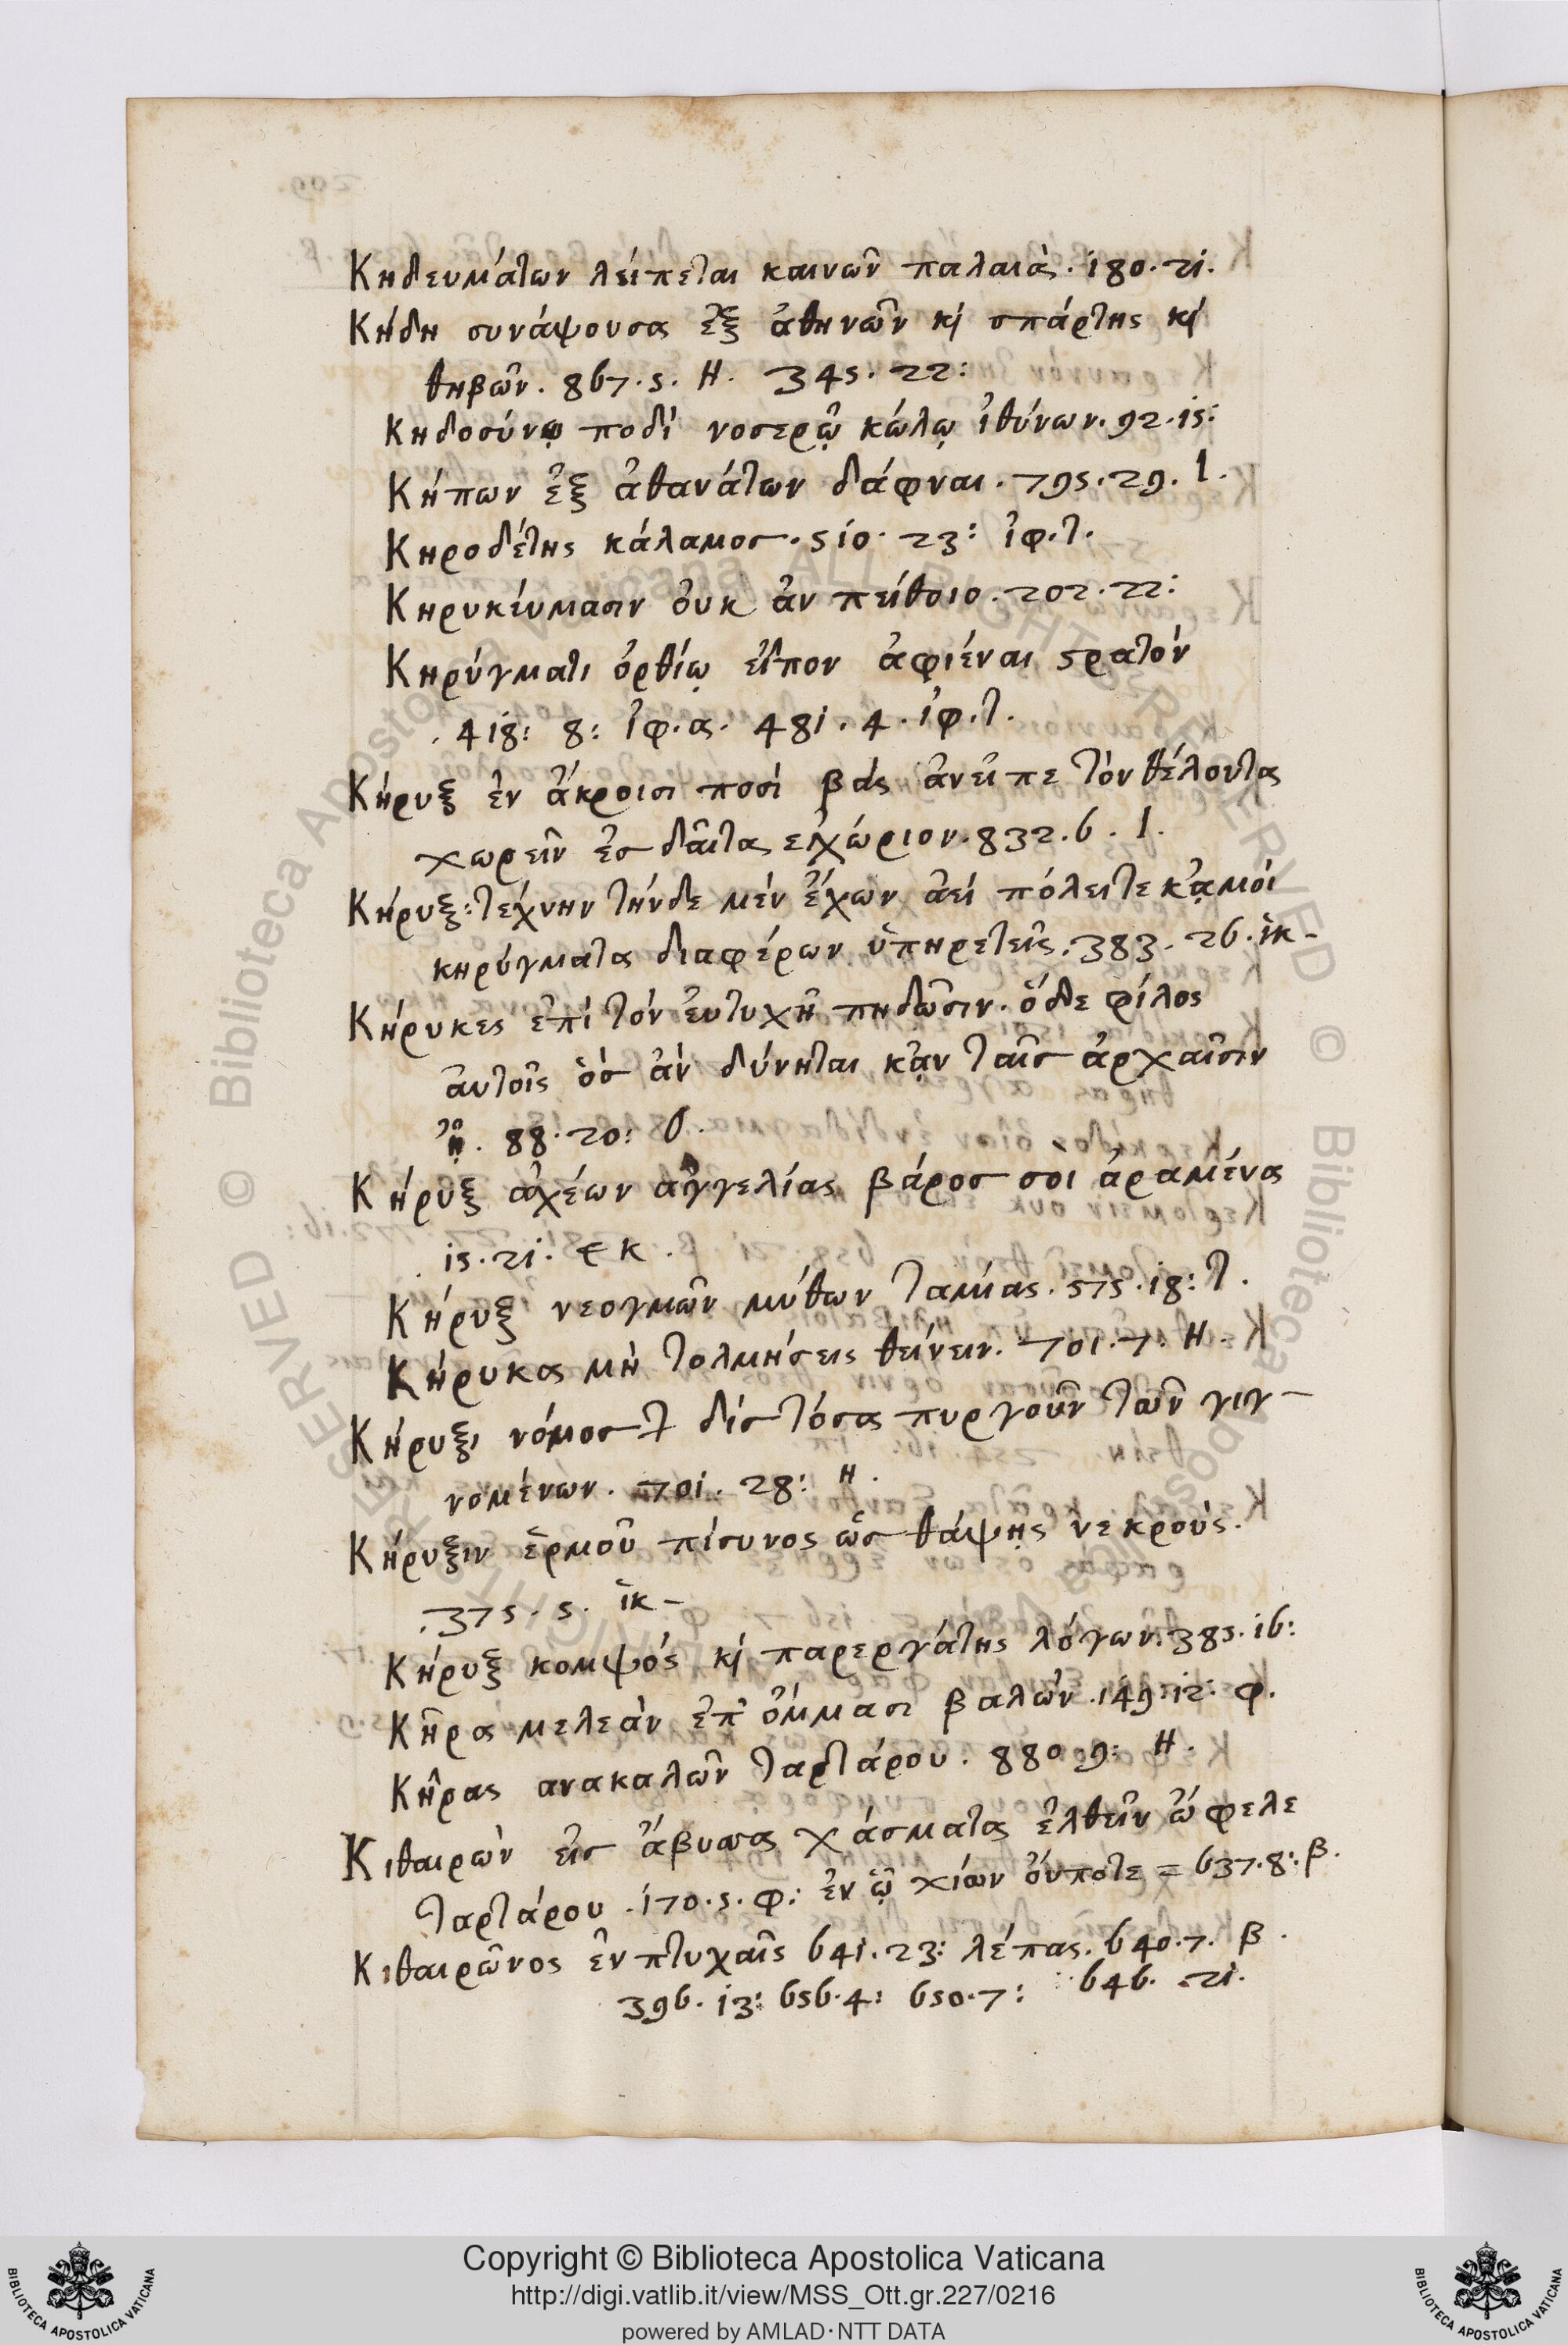 Κηδευμάτων λείπεται καινῶν παλαιὰ. 180. 21.
Κήδη συνάψουσα ἐξ ἀθηνῶν κ̀ σπάρτης κ̀
θηβῶν. 867. 5. Η. 345. 22:
κηδοσύνῳ ποδὶ νοσερῷ κώλῳ ἰθύνων. 92. 15:
Κήπων ἐξ ἀθανάτων δάφναι. 795. 29. Ι.
Κηροδέτης κάλαμοσ. 510. 23: ἰφ. τ.
Κηρυκεύμασιν ὀυκ ἀν πείθοιο. 202. 22:
Κηρύγματι ὀρθίῳ εἶπον ἀφιέναι ϛρατὸν
. 418: 8: ἰφ. α. 481. 4. ἰφ. τ.
Κήρυξ ἐν ἄκροισι ποσὶ βὰς ἀνεῖπε τὸν θέλοντα
χωρεῖν ἐσ δαῖτα ἐγχώριον. 832. 6. Ι.
Κήρυξ: τέχνην τήνδε μὲν ἔχων ἀεὶ πόλει τε κᾀμοὶ
κηρύγματα διαφέρων ὑπηρετεῖς. 383. 26. ἱκ -
Κήρυκες ἐπὶ τὸν ἐυτυχῆ πηδῶσιν. ὅδε φίλος
ἀυτοῖς ὁσ ἀν δύνηται κᾀν ταῖσ ἀρχαῖσιν
ᾖ. 88. 20: Ο.
Κήρυξ ἀχέων ἀγγελίας βάροσ σοὶ ἀραμένα
15. 21: ε κ.
Κήρυξ νεογμῶν μύθων ταμίας. 575. 18: τ.
Κήρυκα μὴ τολμήσεις θείνειν. 701. 7: Η.
Κήρυξι νόμοσ δὶσ τόσα πυργοῦν τῶν γιγ -
νομένων. 701. 28: Η.
Κήρυξιν ἑρμοῦ πίσυνος ὡσ θάψῃς νεκροὺς.
. 375. 5. ἱκ -
Κήρυξ κομψός κ̀ παρεργάτης λόγων. 385. 16:
Κῆρα μελεὰν ἐπ' ὄμμασι βαλὼν. 149. 12: φ.
Κῆρας ανακαλῶν ταρτάρου. 880. 9: Η.
Κιθαιρὼν εἰσ ἄβυσσα χάσματα ἐλθεῖν ὤφελε
ταρτάρου. 170. 5. φ: ἐν ᾧ χιὼν ὄυποτε = 637. 8: β.
Κιθαιρῶνος ἐν πτυχαῖς 641. 23: λέπας. 640. 7. β.
396. 13: 656. 4: 650. 7: 646. 21.
Copyright © Biblioteca Apostolica Vaticana
http://digi.vatlib.it/view/MSS_Ott.gr.227/0216
powered by AMLAD·NTT DATA